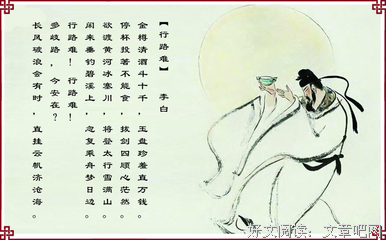 【行路难】 李白
金樽清酒斗十千，玉盘珍羞直万钱。
停杯投箸不能食，拔剑四顾心茫然。
欲渡黄河冰塞川，将登太行雪满山。
闲来垂钓碧溪上，忽复乘舟梦日边。
行路难！行路难！
多歧路，今安在？
长风破浪会有时，直挂云帆济沧海。
好文阅读：文章吧网